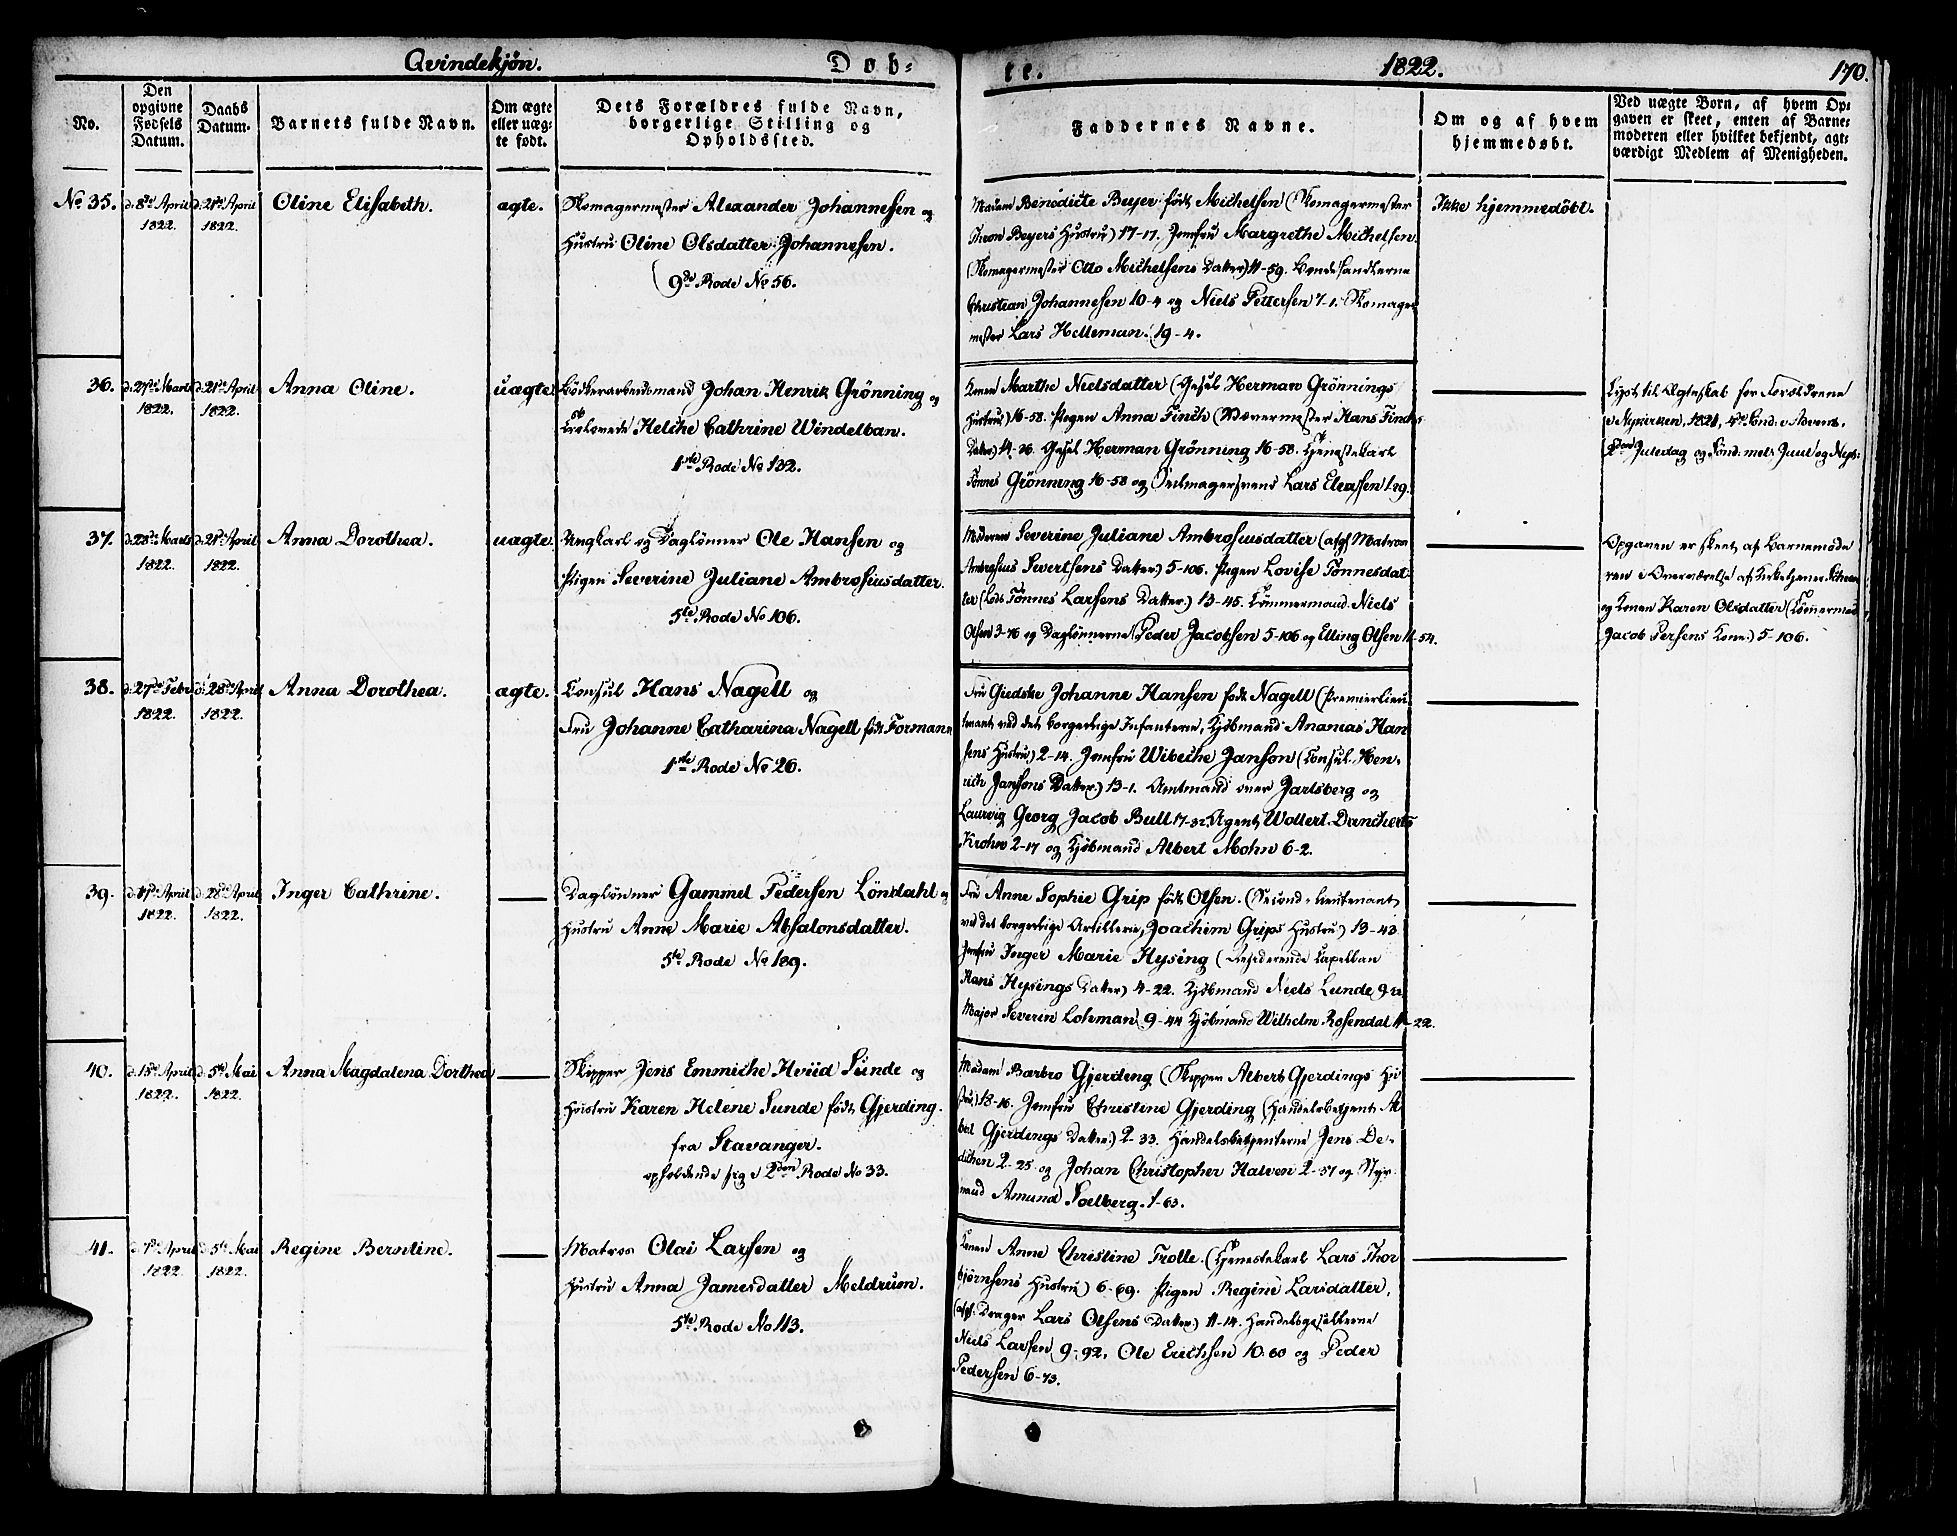 Qvindekjön.
Døb-
te.
1822.
170.
No.
Den opgivne Fødsels Datum.
Daabs Datum.
Barnets fulde Navn.
Om ægte eller uægte født.
Dets Forældres fulde Navn, borgerlige Stilling og Opholdssted.
Faddernes Navne.
Om og af hvem hjemmedøbt.
Ved uægte Børn, af hvem Opgaven er skeet, enten af Barnemoderen eller hvilket bekjendt, agtværdigt Medlem af Menigheden.
No 35.
d. 8de April 1822.
d. 21de April 1822.
Oline Elisabeth.
ægte.
Skomagermester Alexander Johannesen og
Hustru Oline Olsdatter Johannesen.
(9de Rode No 56.
Madam Benedicte Beyer født Michelsen (Skomagermester
Thron Beyers Hustru) 17-17. Jomfru Margrethe Michelsen
(Skomagermester Otto Michelsens Datter) 11-59.
Christian Johannesen 10-4 og Niels Pettersen 7-1. Skomager
mester Lars Helleman. 19-4.
Ikke hjemmedöbt.
36.
d. 27de Marts 1822.
d. 21de April 1822.
Anna Oline.
uægte
Bödkerarbeidsmand Johan Henrik Grönning og
Trolovede Helche Cathrine Windelban.
1ste Rode No 132.
Konen Marthe Nielsdatter (Gesel Herman Grönnings
Hustru) 16-58. Pigen Anna Finch (Vævermester Hans Finchs
Datter) 14-36. Gesel Herman Grönning 16-58. Tjenestekarl
Tönnes Grönning 16-58 og Seilmagersvend Lars Eleasen 1-29.
Lyst til Ægteskab for Forældrene
i Nykirken, 1821, 4de Sönd. i Advent,
2den Juledag og Sönd. mel. Juul og Nyt-
37.
d. 28de Marts 1822.
d. 21de April 1822.
Anna Dorothea.
uægte
Ungkarl og Daglönner Ole Hansen og
Pigen Severine Juliane Ambrosiusdatter.
5te Rode No 106.
Moderen Severine Juliane Ambrosiusdatter (afgl. Matros
Ambrosius Sivertsens Datter) 5-106. Pigen Lovise Tönnesdat
ter (Lods Tönnes Larsens Datter.) 13-45. Tömmermand Niels
Olsen 3-76 og Daglönnerne Peder Jacobsen 5-106 og Elling Olsen 11-54.
Opgaven er skeet af Barnemode
ren i Overværelse af Kirketjener
og Konen Karen Olsdatter (Tömermd
Jacob Persens Kone.) 5-106.
38.
d. 27de Febr 1822.
d. 28de April 1822.
Anna Dorothea.
ægte.
Consul Hans Nagell og
Fru Johanne Catharina Nagell født Formann
1ste Rode No 26.
Fru Giedske Johanne Hansen født Nagell (Premierlieu
tenant ved det borgerlige Infanterie, Kjöbmand Ananias Han
sens Hustru) 2-14. Jomfru Wibeche Janson (Consul Hen-
rich Jansons Datter) 13-1. Amtmand over Jarlsberg og
Laurvig Georg Jacob Bull 17-32, Agent Wollert Danckerts
Krohn 2-17 og Kjöbmand Albert Mohn 6-2.
39.
April 1822.
d. 28de April 1822.
Inger Cathrine.
Daglönner Gammel Pedersen Löndahl og
Hustru Anne Marie Absalonsdatter.
5te Rode No 189.
Fru Anne Sophie Grip født Olsen. (Second-Lieutenant
ved det borgerlige Artillerie, Joachim Grips Hustru) 13-43.
Jomfru Inger Marie Hysing (Residerende Capellan
Hans Hysings Datter) 4-22. Kjöbmand Niels Lunde
Major Severin Lohman 9-44 Kjöbmand Wilhelm Rosendal 11-22.
40.
April 1822.
d. 5te Mai 1822.
Anna Magdalena Dorthea
Skipper Jens Emmiche Hviid Sunde og
Hustru Karen Helene Sunde født Gjerding.
fra Stavanger.
opholdende sig i 2den Rode No 33.
Madam Barbro Gjerding (Skipper Albert Gjerdings Hu
stru) 18-16. Jomfru Christine Gjerding (Handelsbetjent Al
bert Gjerdings Datter.) 2-33. Handelsbetjenterne Jens De-
dichen 2-25 og Johan Christopher Halven 2-57 og Styr-
mand Amund Soelberg. 1-63.
41.
April 1822.
d. 5te Mai 1822.
Regine Berntine.
Matros Olai Larsen og
Hustru Anna Jamesdatter Meldrum.
5te Rode No 113.
Konen Anne Christine Trolle. (Tjenestekarl Lars Thor
björnsens Hustru) 6-69. Pigen Regine Larsdatter,
(afgl. Drager Lars Olsens Datter) 11-14. Handelsgesellerne
Niels Larsen 9-92, Ole Erichsen 10-60 og Peder
Pedersen 6-73.